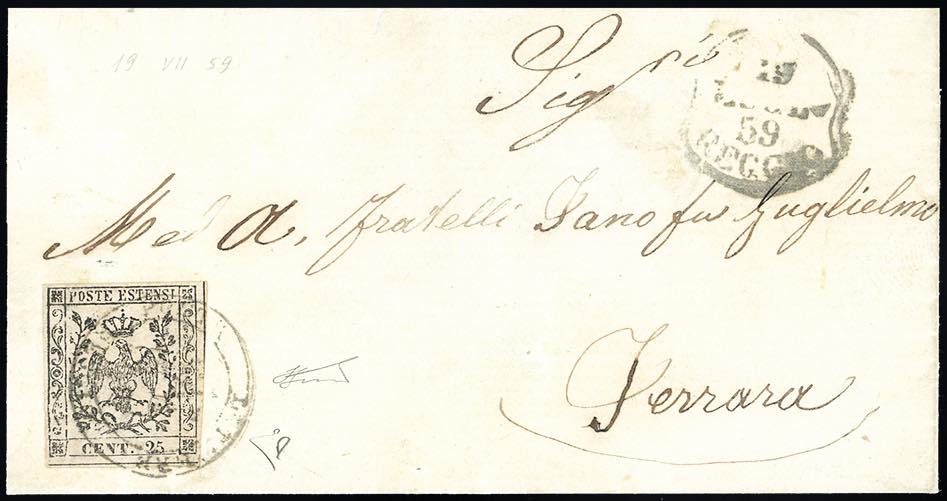 19 VII 59
Sigri
19
59
REGGIO
Med A. Fratelli Fano fu Guglielmo
POSTE ESTENSI
CENT. 25
Ferrara